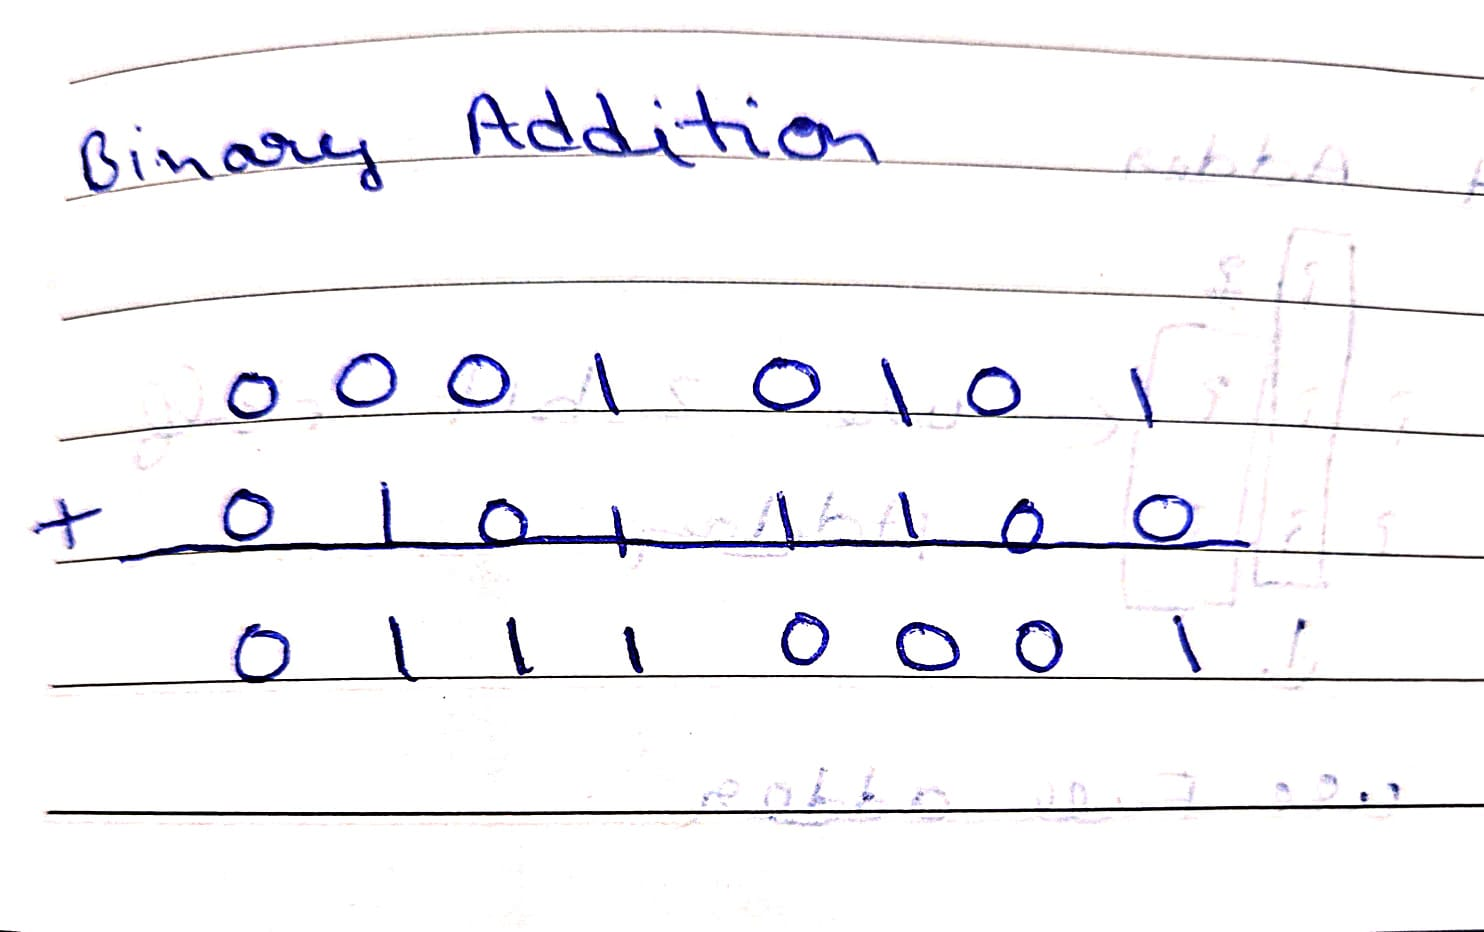 Binary Addition
0 0 0 1 0 1 0 1
+ 0 1 0 1 1 1 0 0
0 1 1 1 0 0 0 1